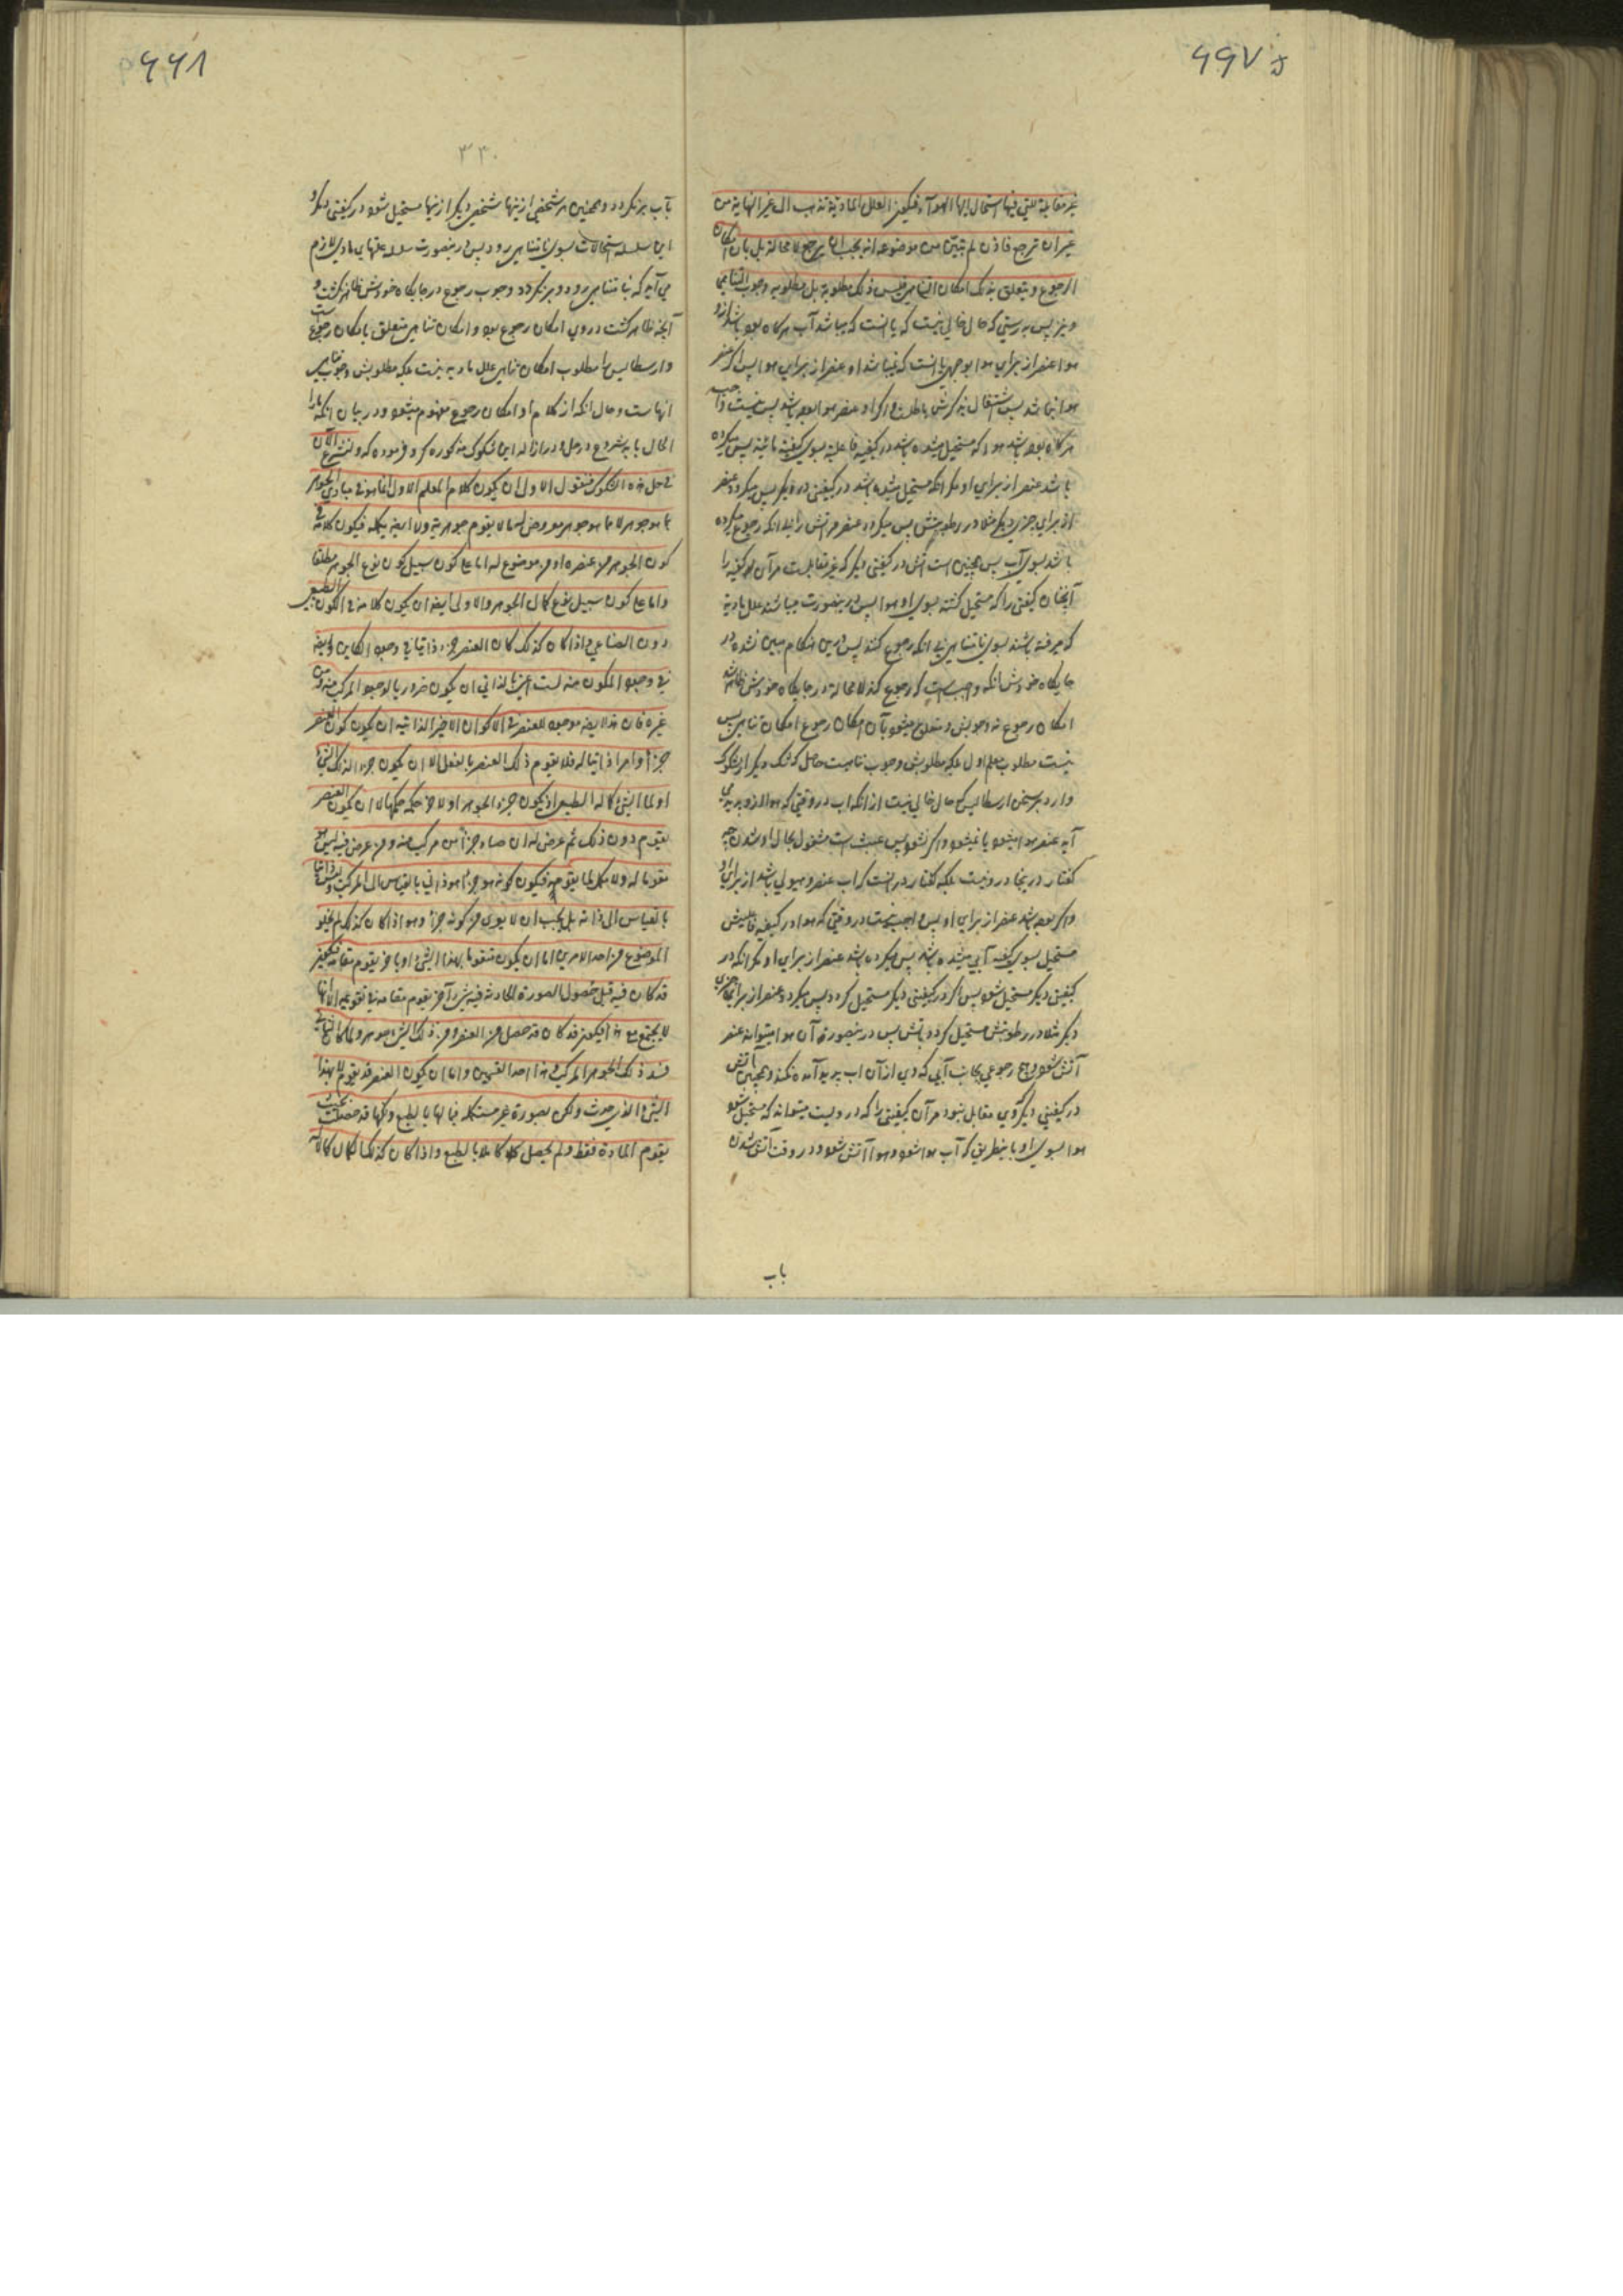 ۶۶۷
غير مقابلة للتي فيها استحال إليها الهواء فيكون العلل المادية تذهب الى غير النهاية من
غير ان ترجع فاذن لم يتبيّن من موضوعه انه يجب ان يرجع لا محالة بل بان امكان
الرجوع ويتعلق بذلك امكان التناهي فليس ذلك مطلوبه بل مطلوبه وجوب التناهي
هوا عنصر از برای هوا بوجهی یا آنست که نمیباشد او عنصر از برای هوا پس اگر عنصر
باشد عنصر از برای او مگر آنکه مستحیل شده باشد در کیفیتی دیگر پس میگردد عنصر
از برای چیزی دیگر مثلا در رطوبتش پس میگردد عنصر مر آتش را بی آنکه رجوع میکرده
باشد بسوی آب پس همچنین است آتش در کیفیتی دیگر که غیر مقابلست مر آن کیفیة را
آنچنان کیفیتی را که مستحیل گشته بسوی او هوا پس درینصورت میباشد علل مادیة
که میرفته باشند بسوی نامتناهی بی آنکه رجوع کنند پس درین هنگام مبین نشده در
جایگاه خودش آنکه واجب است که رجوع کند لا محاله در جایگاه خودش ظاهر شد
امکان رجوع نه وجوبش و متعلق میشود بآن امکان رجوع امکان تناهی پس
نیست مطلوب معلم اول بلکه مطلوبش وجوب تناهیست حاصل که شک دیگر از شکوک
وارد بر سخن ارسطالیس که حال خالی نیست از آنکه آب در وقتی که هوا از و پدید می
آید عنصر هوا میشود یا نمیشود و اگر نشود پس عبث است مشغول بحال او شدن چه
گفتار درینجا درو نیست بلکه گفتار در آنست که آب عنصر و هیولی باشد از برای او
و اگر بوده باشد عنصر از برای او پس واجب نیست در وقتی که هوا در کیفیة فاعلیش
مستحیل بسوی کیفیة آبی میشده باشد پس میگردیده باشد عنصر از برای او مگر آنکه در
کیفیتی دیگر مستحیل شود پس اگر در کیفیتی دیگر مستحیل گردد پس میگردد عنصر از برای چیزی
دیگر مثلا در رطوبتش مستحیل گردد بآتش پس در ینصورة آن هوا میتواند عنصر
آتش شود و هیچ رجوعی بجانب آبی که وی از آن آب پدید آمده نکند و همچنین آتش
در کیفیتی دیگر که وی مقابل نبود مر آن کیفیتی را که درویست میتواند که مستحیل شود
هوا بسوی او باینطریق که آب هوا شود و هوا آتش شود و در وقت آتش شدن
باب
۶۶۸
۳۳۰
بآب برنگردد و همچنین هر شخصی ازینها بشخصی دیگر ازینها مستحیل شود در کیفیتی دیگر و
این سلسله استحالات بسوی نامتناهی رود پس درینصورت سلسله علتهای مادی لازم
می آید که بنامتناهی رود و برنگردد و وجوب رجوع در جایگاه خودش ظاهر نگشت و
آنچه ظاهر گشت در وی امکان رجوع بود و امکان تناهی متعلق بامکان رجوعست
و ارسطالیس را مطلوب امکان تناهی علل مادیه نیست بلکه مطلوبش وجوب تناهی
آنهاست و حال آنکه از کلام او امکان رجوع مفهوم میشود و در بیان آنکه ما را
الحال باید شروع در حل و در ازاله این شکوک مذکوره کرد فرموده که ولنشرع الآن
في حل هذه الشكوك فنقول الاولى ان يكون كلام المعلم الاول انما هو في مبادي الجوهر
بما هو جوهر لا بما هو جوهر معروض لما لا يقوم جوهريته ولا ايضا يكمله فيكون كلامه في
كون الجوهر من عنصره او من موضوع له اما على كون سبيل كون نوع الجوهر مطلقا
واما على كون سبيل نوع كمال الجوهر والاولى ايضا ان يكون كلامه في الكون الطبيعي
دون الصناعي واذا كان كذلك كان العنصر جزء ذاتيا في وجود الكاين وايضا
في وجود المكون منه لست اعني بالذاتي ان يكون ضروريا لوجود المركب منه ومن
غيره فان هذا ايضا موجود للعنصر في الاكوان الاخير الذاتية ان يكون كون العنصر
جزءا وامرا ذاتيا له فلا يقوم ذلك العنصر بالفعل الا ان يكون جزءا لذلك الشيء
او لما الشيء كماله الطبيعي ان يكون جزء الجوهر اولا حكمه حكمها لا ان يكون العنصر
يتقوم دون ذلك ثم عرض له ان صار جزءا من مركب منه ومن عرض فيه ليس هو
مقوما له ولا مكملا لما يقومه فيكون كونه جزءا هو ذاتي بالقياس الى المركب وليس ذاتيا
بالقياس الى ذاته بل يجب ان لا يعرى من كونه جزءا وهو اذا كان كذلك لم يخلو
الموضوع من احد الامرين اما ان يكون متقوما بهذا الشيء او بآخر يقوم مقامه فيكون
قد كان فيه قبل حصول الصورة الحادثة فيه شيء آخر يقوم مقامه في تقويمه الا انها
لا يجتمع مع هذا فيكون قد كان قد حصل من العنصر ومن ذلك الشيء جوهر
فسد ذلك الجوهر المركب هذا احد القسمين واما ان يكون العنصر قد يقوم لا بهذا
الشيء الذي حدث ولكن بصورة غير مستكمله فيما لها بالطبع ولكنها قد حصلت بحيث
يقوم المادة فقط ولم يحصل كمالا بالطبع واذا كان كذلك كان كماله